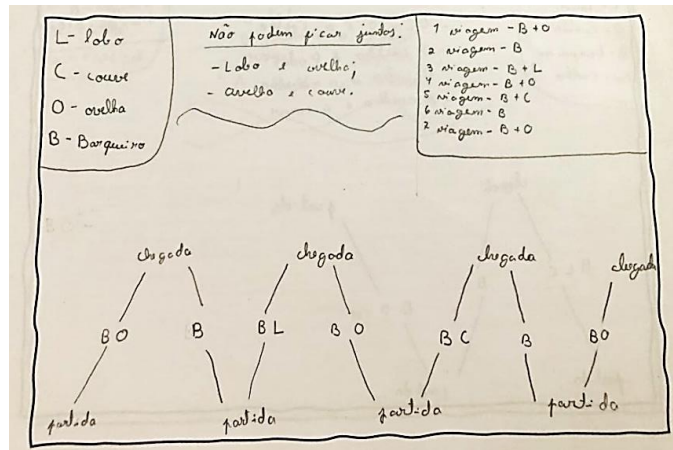 L - lobo
C - couve
O - ovelha
B - Barqueiro
Não podem ficar juntos:
- Lobo e ovelha;
- ovelha e couve.
1 viagem - B + O
2 viagem - B
3 viagem - B + L
4 viagem - B + O
5 viagem - B + C
6 viagem - B
7 viagem - B + O
chegada chegada chegada chegada
B O B B L B O B C B BO
partida partida partida partida